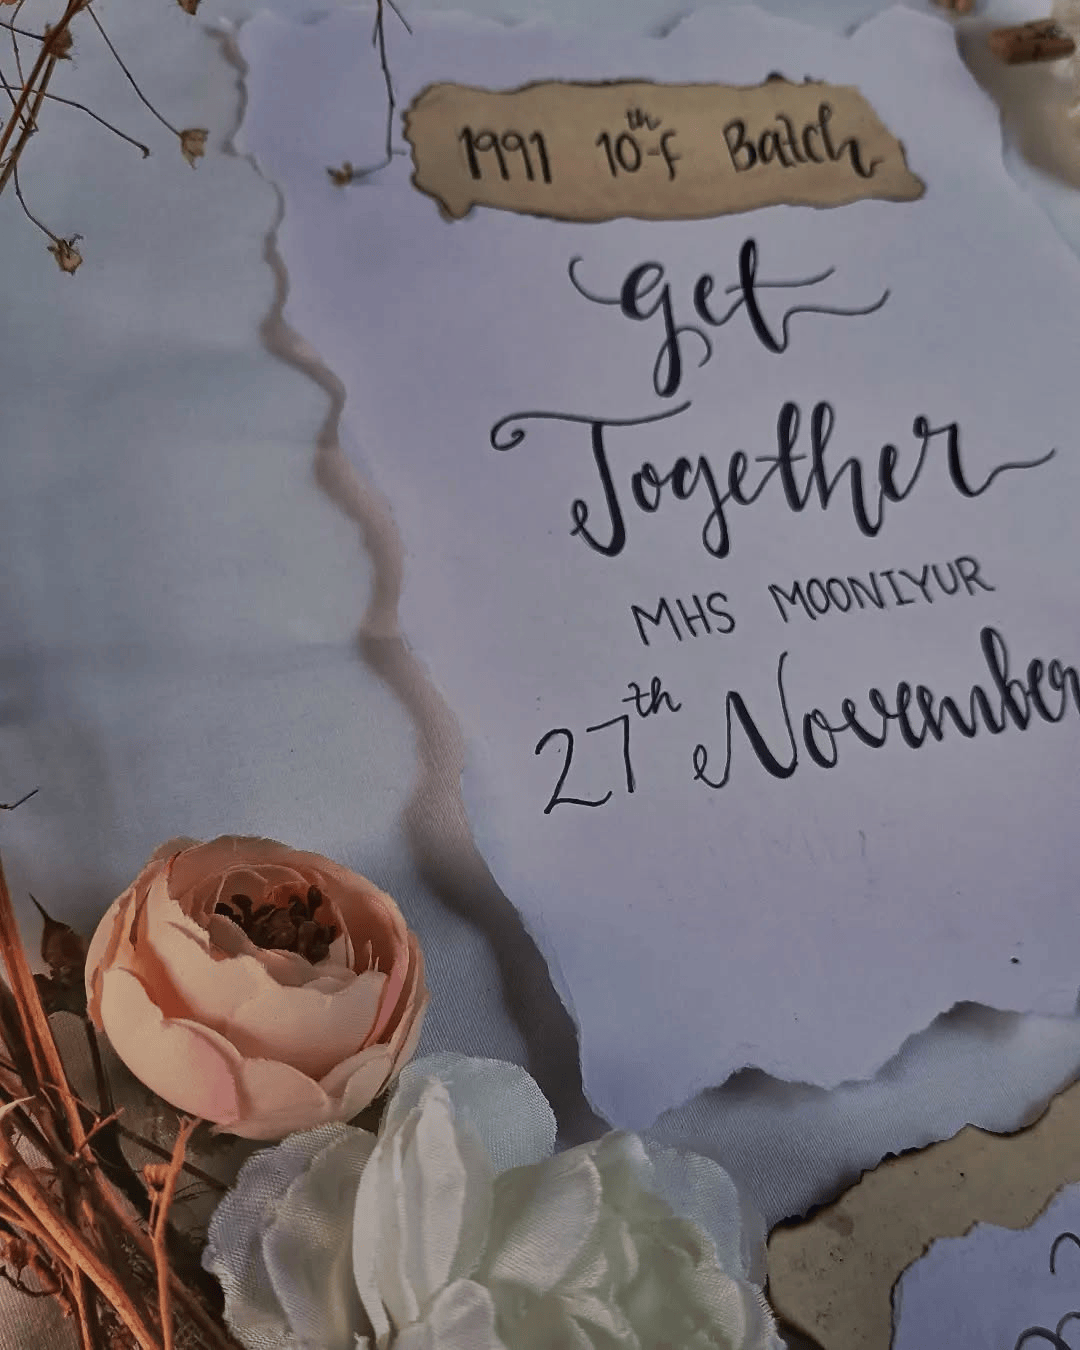 1991 10th-F Batch
Get
Together
MHS MOONIYUR
27th November